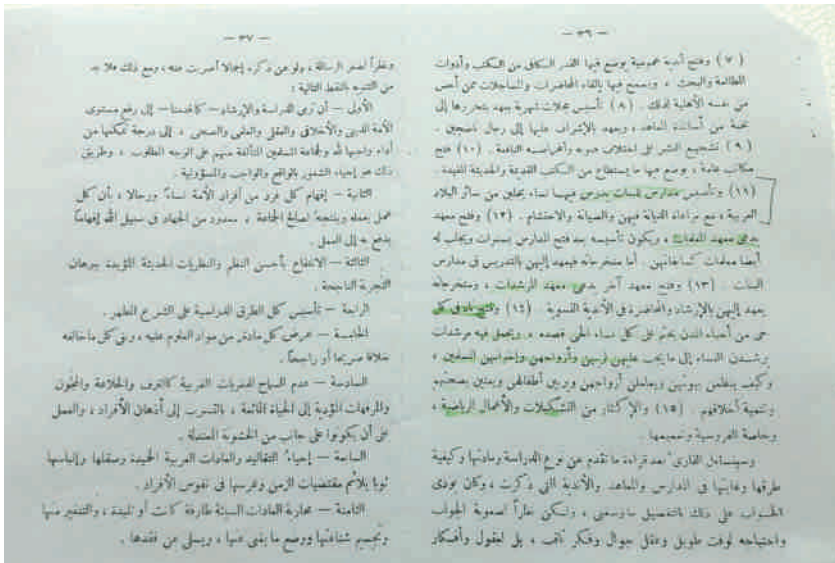 — ٣٦ —
(٧) وفتح أندية عمومية يوضع فيها القدر الكافى من الكتب وأدوات
المطالعة والبحث ، ويسمح فيها بالقاء المحاضرات والمساجلات ممن أحس
من نفسه الأهلية لذلك . (٨) تأسيس مجلات شهرية يعهد بتحريرها إلى
نخبة من أساتذة المعاهد ، ويعهد بالإشراف عليها إلى رجال ناضجين .
(٩) تشجيع النشر على اختلاف ضروبه وأغراضه النافعة . (١٠) فتح
مكاتب عامة ، يوضع فيها ما يستطاع من الكتب القديمة والحديثة المفيدة .
(١١) وتأسيس مدارس للبنات يدرس فيها نساء يجلبن من سائر البلاد
العربية ، مع مراعاة الديانة فيهن والصيانة والاحتشام . (١٢) وفتح معهد
يدعى معهد المعلمات ، ويكون تأسيسه بعد فتح المدارس بسنوات ويجلب له
أيضا معلمات كسابقاتهن . أما متخرجاته فيعهد إليهن بالتدريس فى مدارس
البنات . (١٣) وفتح معهد آخر يدعى معهد المرشدات ، ومتخرجاته
يعهد إليهن بالإرشاد والمحاضرة فى الأندية النسوية . (١٤) وفتح ناد فى كل
حى من أحياء المدن يحتم على كل نساء الحى قصده ، ويجعل فيه مرشدات
يرشدن النساء إلى ما يجب عليهن لربهن وأزواجهن وإخوانهن المسلمين ،
وكيف ينظمن بيوتهن ويعاملن أزواجهن ويربين أطفالهن ويعنين بصحتهم
وتنمية أخلاقهم . (١٥) والإكثار من التشكيلات والأعمال الرياضية ،
وخاصة الفروسية وتعميمها .
وسيتساءل القارئ بعد قراءة ما تقدم عن نوع الدراسة ومادتها وكيفية
طرقها وغايتها فى المدارس والمعاهد والأندية التى ذكرت ، وكان بودى
الجواب على ذلك بالتفصيل ما وسعنى ، ولكن نظراً لصعوبة الجواب
واحتياجه لوقت طويل وعقل جوال وفكر ثاقب ، بل لعقول وأفكار
— ٣٧ —
ونظراً لصغر الرسالة ، ولو عن ذكره إجمالا أضربت عنه ، ومع ذلك فلا بد
من التنويه بالنقط التالية :
الأولى — أن ترمى الدراسة والإرشاد — كما قدمنا — إلى رفع مستوى
الأمة الدينى والأخلاقى والعقلى والعلمى والصحى ، إلى درجة تمكنها من
أداء واجبها لله ولجماعة المسلمين المتألفة منهم على الوجه المطلوب ، وطريق
ذلك هو إحياء الشعور بالواقع والواجب والمسؤولية .
الثانية — إفهام كل فرد من أفراد الأمة نساءً ورجالا ، بأن كل
عمل يعمله وينتجه لصالح الجماعة ، معدود من الجهاد فى سبيل الله إفهاماً
يدفع به إلى العمل .
الثالثة — الانتفاع بأحسن النظم والنظريات الحديثة المؤيدة ببرهان
التجربة الناجحة .
الرابعة — تأسيس كل الطرق الدراسية على الشرع المطهر .
الخامسة — عرض كل مادة من مواد العلوم عليه ، ونفى كل ما خالفه
خلافا صريحا أو راجحاً .
السادسة — عدم السماح للمغريات الغربية كالترف والخلاعة والمجون
والمرفهات المؤدية إلى الحياة المائعة ، بالتسرب إلى أذهان الأفراد ، والعمل
على أن يكونوا على جانب من الخشونة المعتدلة .
السابعة — إحياء التقاليد والعادات العربية الحميدة وصقلها وإلباسها
ثوبا يلائم مقتضيات الزمن وغرسها فى نفوس الأفراد .
الثامنة — محاربة العادات السيئة طارفة كانت أو تليدة ، والتنفير منها
وتجسيم شناعتها ووضع ما يغنى عنها ، ويسلى عن فقدها .